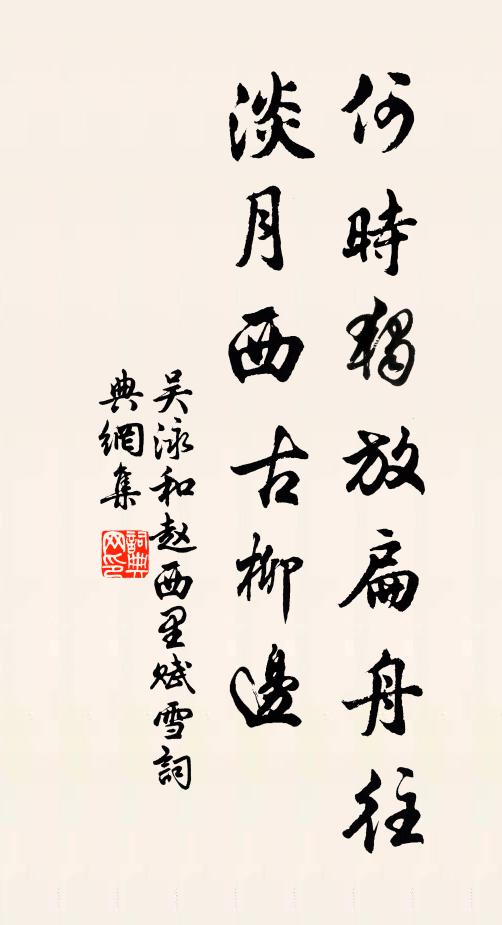 何時獨放扁舟往
淡月西古柳邊
吴泳和赵西里赋雪詞
典網集
詞典网印